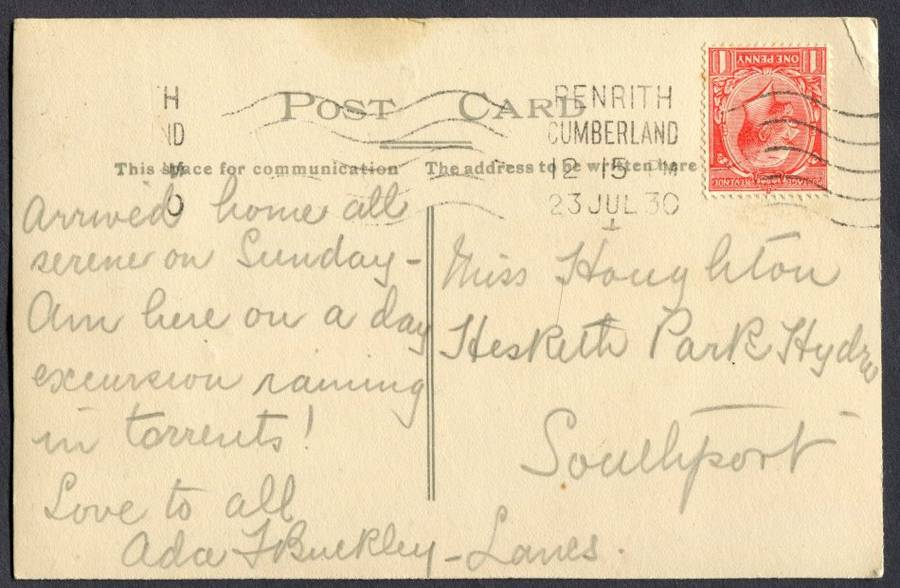 POST CARD
This space for communication The address to be written here
PENRITH
CUMBERLAND
12 15 PM
23 JUL 30
ONE PENNY
1 1
POSTAGE REVENUE
H
ND
M
O
Arrived home all
serene on Sunday -
Am here on a day
excursion raining
in torrents!
Love to all
Ada F Buckley
Miss Houghton
Hesketh Park Hydro
Southport
- Lancs.